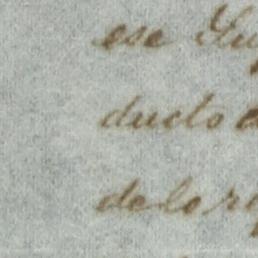 ese Su
ducto
de lo